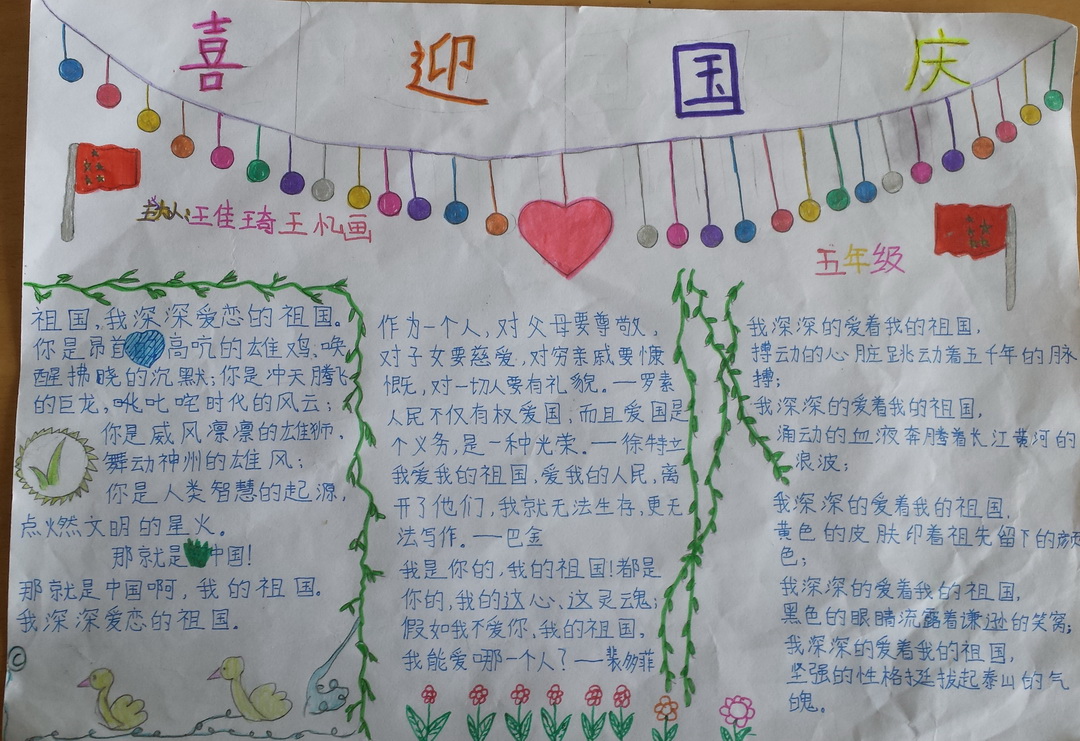 喜迎国庆
主办人:王佳琦王忆画
五年级
祖国,我深深爱恋的祖国。
你是昂首高吭的雄鸡、唤
醒拂晓的沉默;你是冲天腾飞
的巨龙,叱咤时代的风云;
你是威风凛凛的雄狮、
舞动神州的雄风;
你是人类智慧的起源,
点燃文明的星火。
那就是中国!
那就是中国啊,我的祖国。
我深深爱恋的祖国。
作为一个人,对父母要尊敬,
对子女要慈爱,对穷亲戚要慷
慨,对一切人要有礼貌。—罗素
人民不仅有权爱国,而且爱国是
个义务,是一种光荣。—徐特立
我爱我的祖国,爱我的人民,离
开了他们,我就无法生存,更无
法写作。—巴金
我是你的,我的祖国!都是
你的,我的这心、这灵魂;
假如我不爱你,我的祖国,
我能爱哪一个人?—裴多菲
我深深的爱着我的祖国,
搏动的心脏跳动着五千年的脉
搏;
我深深的爱着我的祖国,
涌动的血液奔腾着长江黄河的
浪波;
我深深的爱着我的祖国,
黄色的皮肤印着祖先留下的颜
色;
我深深的爱着我的祖国,
黑色的眼睛流露着谦逊的笑窝;
我深深的爱着我的祖国,
坚强的性格挺拔起泰山的气
魄。